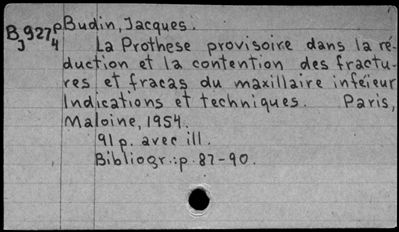 B927p Budin, Jacques.
J 4
La Prothese provisoire dans la ré-
duction et la contention des fractu-
res et fracas du maxillaire inféieur
Indications et techniques. Paris,
Maloine, 1954.
91 p. avec ill.
Bibliogr.: p. 87-90.